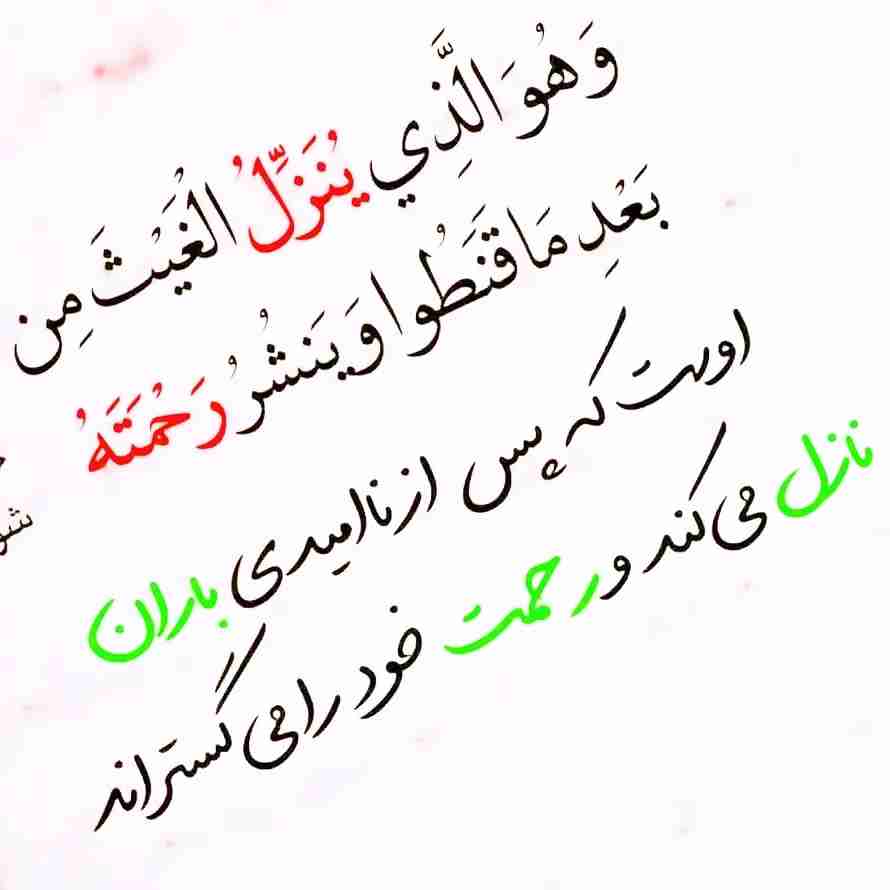 وَهُوَ الَّذِي يُنَزِّلُ الْغَيْثَ مِن
بَعْدِ مَا قَنَطُوا وَيَنشُرُ رَحْمَتَهُ
اوست که پس از ناامیدی باران
نازل می کند و رحمت خود را می گستراند